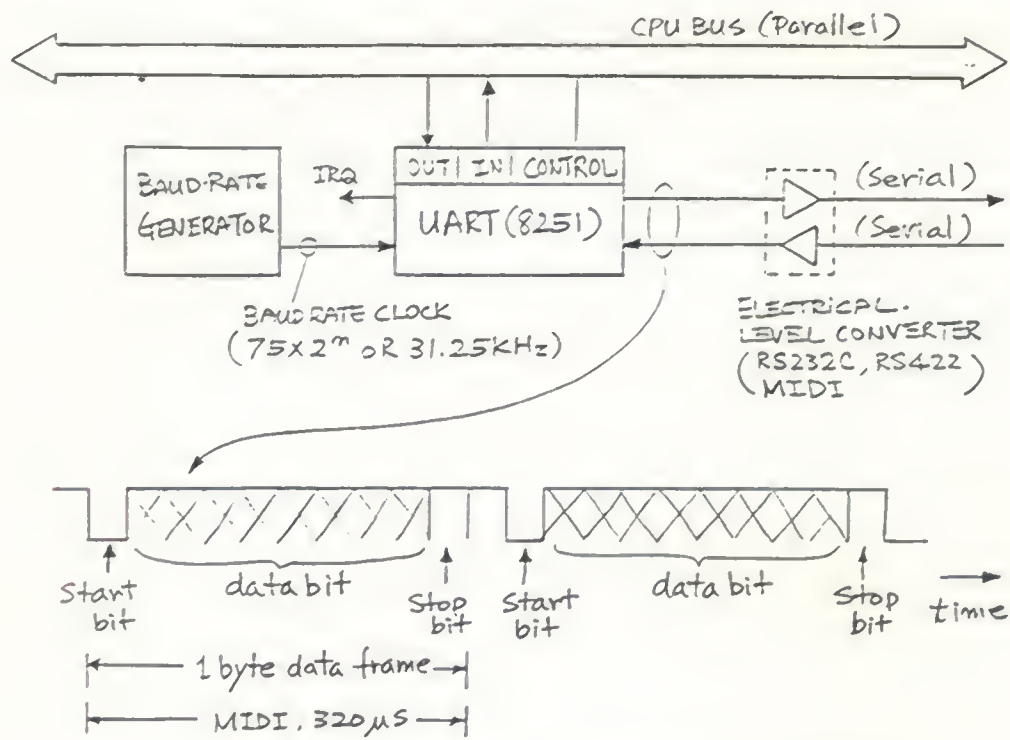 CPU BUS (Parallel)
BAUD-RATE
GENERATOR
IRQ
OUT IN CONTROL
UART (8251)
(Serial)
(Serial)
BAUDRATE CLOCK
(75×2ⁿ OR 31.25KHz)
ELECTRICAL-
LEVEL CONVERTER
(RS232C, RS422)
(MIDI
Start
bit
data bit
Stop
bit
Start
bit
data bit
Stop
bit
time
1 byte data frame
MIDI. 320μS